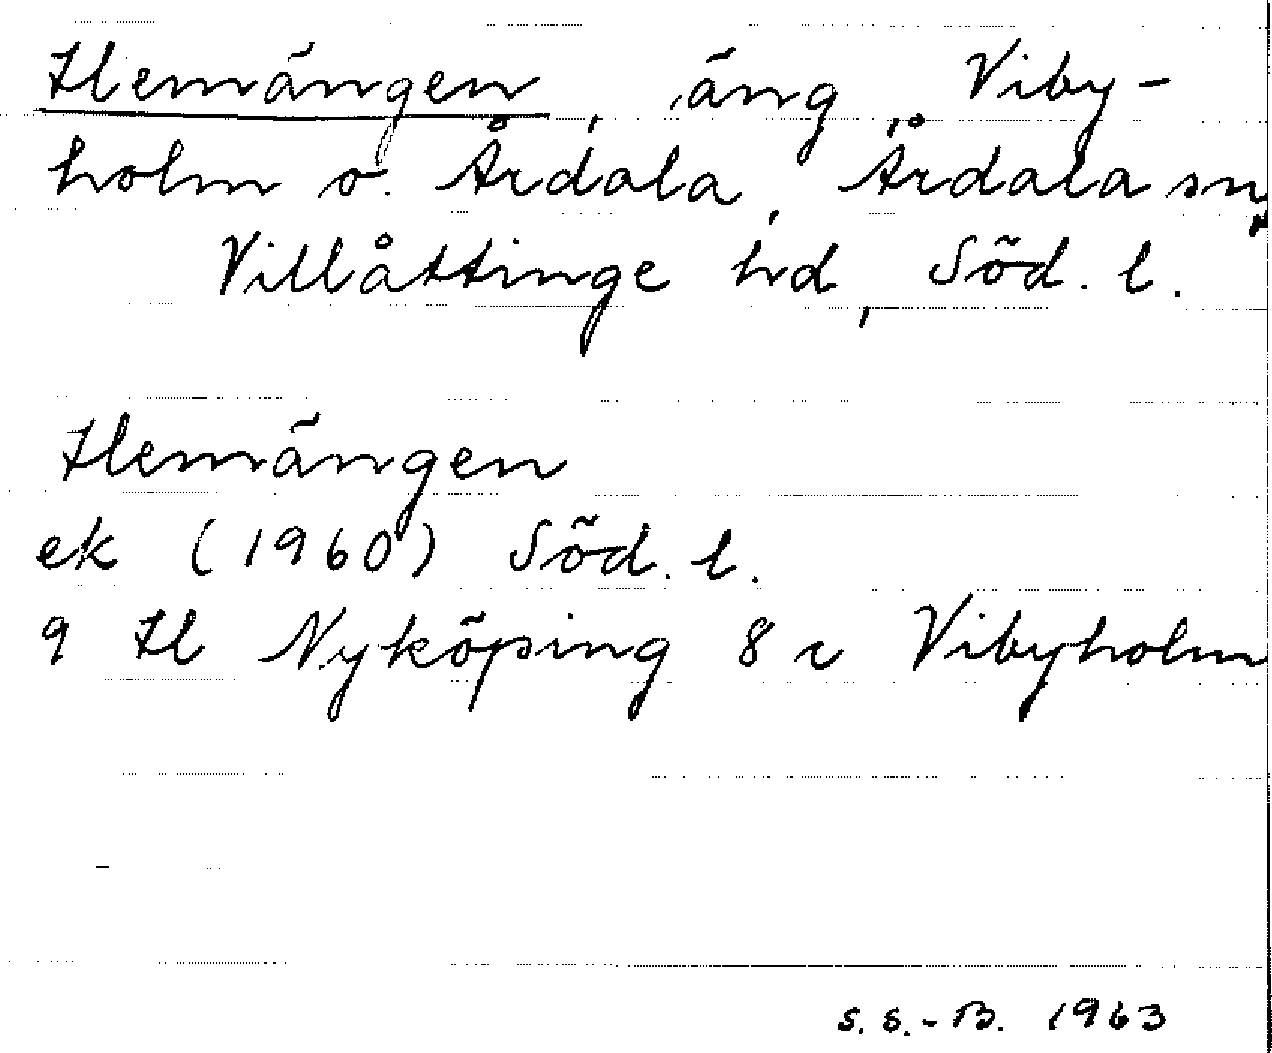 Hemängen, äng, Viby-
holm o. Årdala, Årdala sn,
Villåttinge hd, Söd. l.
Hemängen
ek (1960) Söd. l.
9 H Nyköping 8 c Vibyholm
S. S.-B. 1963